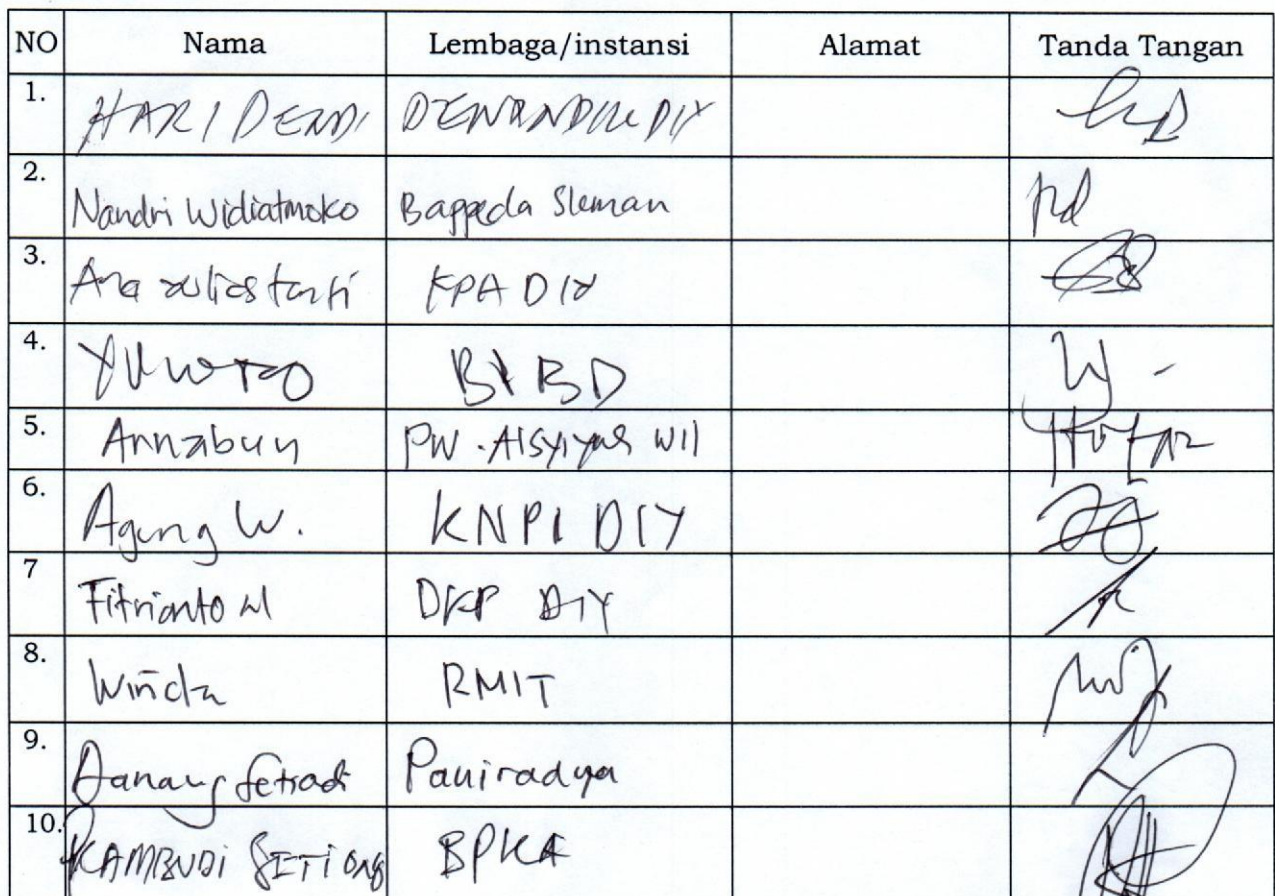 NO Nama Lembaga/instansi Alamat Tanda Tangan
1. HARI DENDI DIY
2. Nandri Widiatmoko Bappeda Sleman
3. Ana KPA DIY
4. Yuwono BPBD
5. Annabun PW. Aisyiyah Wil
6. Agung W. KNPI DIY
7 Fitrianto W DKP DIY
8. Winda RMIT
9. Danang Setiadi Paniradya
10. BPKA